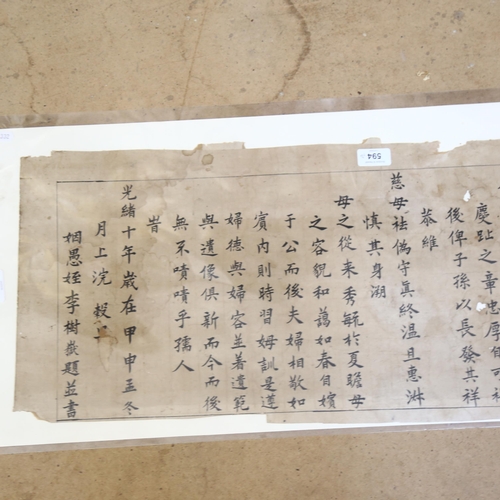 麐趾之章忠厚自可
後俾子孫以長發其祥
恭維
慈母祛偽守真終溫且惠淋
慎其身溯
母之從來秀毓於夏瞻母
之容貌和藹如春自嬪
于公而後夫婦相敬如
賓內則時習姆訓是遵
婦德與婦容並著遺範
與遺像俱新而今而後
無不嘖嘖乎孺人
旹
光緒十年歲在甲申孟冬
月上浣 穀旦
姻愚姪李樹嶽題並書
594